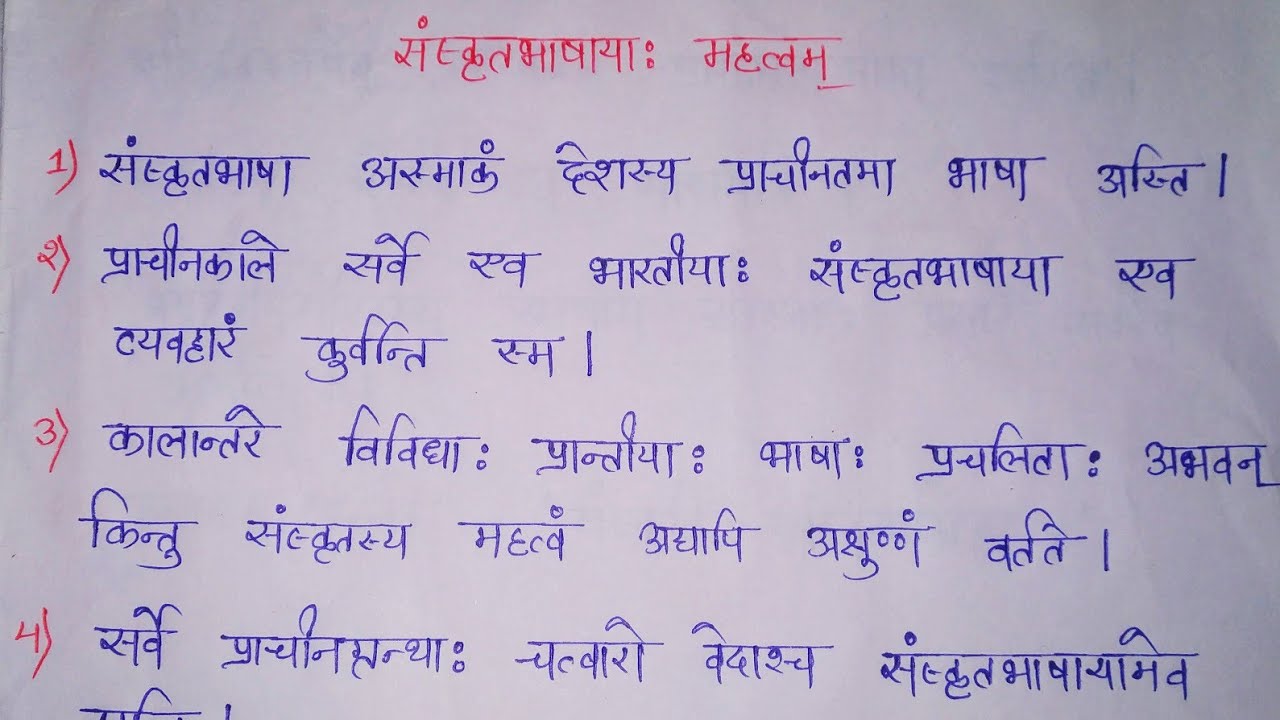 संस्कृतभाषायाः महत्वम्
1) संस्कृतभाषा अस्माकं देशस्य प्राचीनतमा भाषा अस्ति।
२) प्राचीनकाले सर्वे एव भारतीयाः संस्कृतभाषाया एव
व्यवहारं कुर्वन्ति स्म।
3) कालान्तरे विविधाः प्रान्तीयाः भाषाः प्रचलिताः अभवन्
किन्तु संस्कृतस्य महत्वं अद्यापि अक्षुण्णं वर्तते।
4) सर्वे प्राचीनग्रन्थाः चत्वारो वेदाश्च संस्कृतभाषायामेव